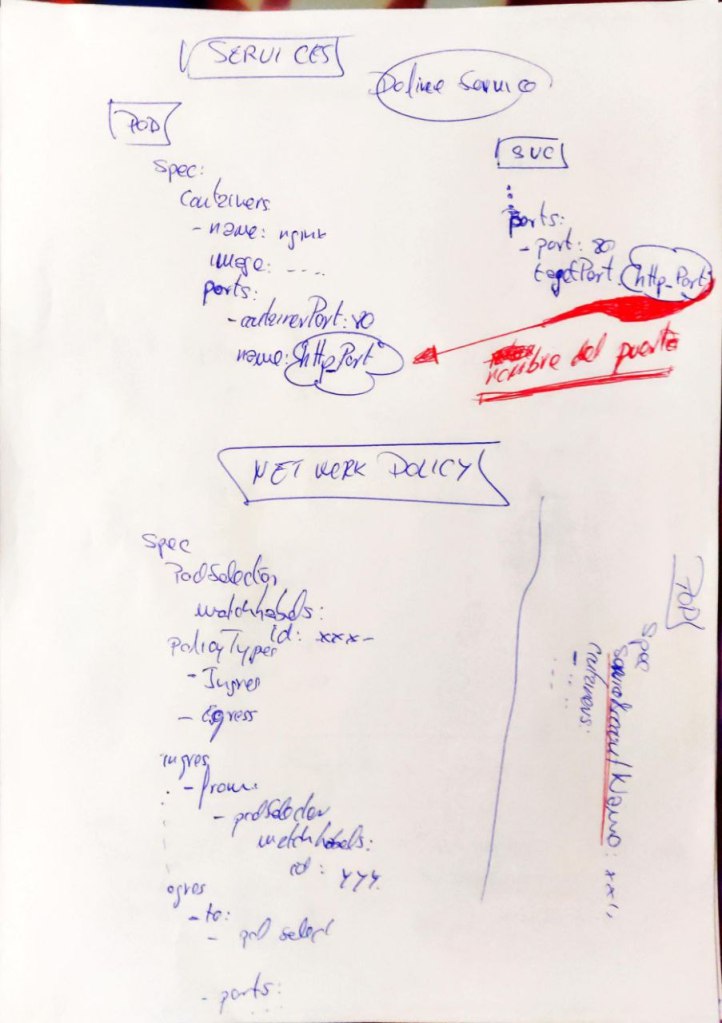 SERVICES
Define Servico
POD
Spec:
Containers
- name: nginx
image: ----
ports:
- containerPort: 80
name: http_Port
SVC
ports:
- port: 80
targetPort: http_Port
nombre del puerto
NETWERK POLICY
Spec
PodSelector
matchLabels:
id: xxx-
PolicyTypes
- Ingres
- Egress
ingres
- from:
- podSelector
matchLabels:
id: yyy.
egres
- to:
- pod select
- ports:
POD
Spec
ServiceAccountName: xxx,
Containers:
- ...